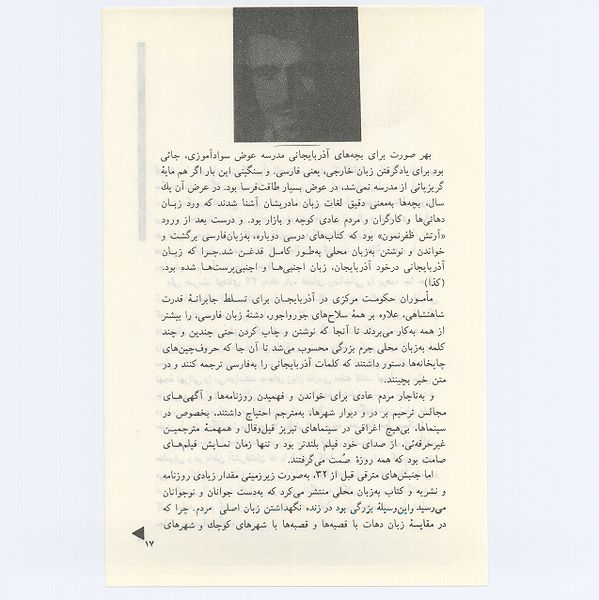 بهر صورت برای بچه‌های آذربایجانی مدرسه عوض سوادآموزی، جائی
بود برای یادگرفتن زبان خارجی، یعنی فارسی. و سنگینی این بار اگر هم مایهٔ
گریزپائی از مدرسه نمی‌شد، در عوض بسیار طاقت‌فرسا بود. در عرض آن یك
سال، بچه‌ها به‌معنی دقیق لغات زبان مادریشان آشنا شدند که ورد زبـان
دهاتی‌ها و کارگران و مردم عادی کوچه و بازار بود. و درست بعد از ورود
«آرتش ظفرنمون» بود که کتاب‌های درسی دوباره، به‌زبان‌فارسی برگشت و
خواندن و نوشتن به‌زبان محلی به‌طـور کامـل قدغـن شد.چـرا که زبـان
آذربایجانی درخود آذربایجان، زبان اجنبی‌ها و اجنبی‌پرست‌ها شده بود.
(کذا)
مأمـوران حکومـت مرکزی در آذربایجـان برای تسـلط جابرانـهٔ قدرت
شاهنشاهی، علاوه بر همهٔ سلاح‌های جورواجور، دشنهٔ زبان فارسی، را بیشتر
از همه به‌کار می‌بردند تا آنجا که نوشتن و چاپ کردن حتی چندین و چند
کلمه به‌زبان محلی جرم بزرگی محسوب می‌شد تا آن جا که حروف‌چین‌های
چاپخانه‌ها دستور داشتند که کلمات آذربایجانی را به‌فارسی ترجمه کنند و در
متن خبر بچینند.
و به‌ناچار مردم عادی برای خواندن و فهمیدن روزنامه‌ها و آگهی‌های
مجالس ترحیم بر در و دیوار شهرها، به‌مترجم احتیاج داشتند، بخصوص در
سینماها، بی‌هیچ اغراقی در سینماهای تبریز قیل‌وقال و همهمـهٔ مترجمیـن
غیرحرفه‌ئی، از صدای خود فیلم بلندتر بود و تنها زمان نمـایش فیلم‌هـای
صامت بود که همه روزهٔ صُمت می‌گرفتند.
اما جنبش‌های مترقی قبل از ۳۲، به‌صورت زیرزمینی مقدار زیادی روزنامه
و نشریه و کتاب به‌زبان محلی منتشر می‌کرد که به‌دست جوانان و نوجوانان
می‌رسید واین‌وسیلهٔ بزرگی بود در زنده نگهداشتن زبان اصلی مردم. چرا که
در مقایسهٔ زبان دهات با قصبه‌ها و قصبه‌ها با شهرهای کوچك و شهرهای
۱۷